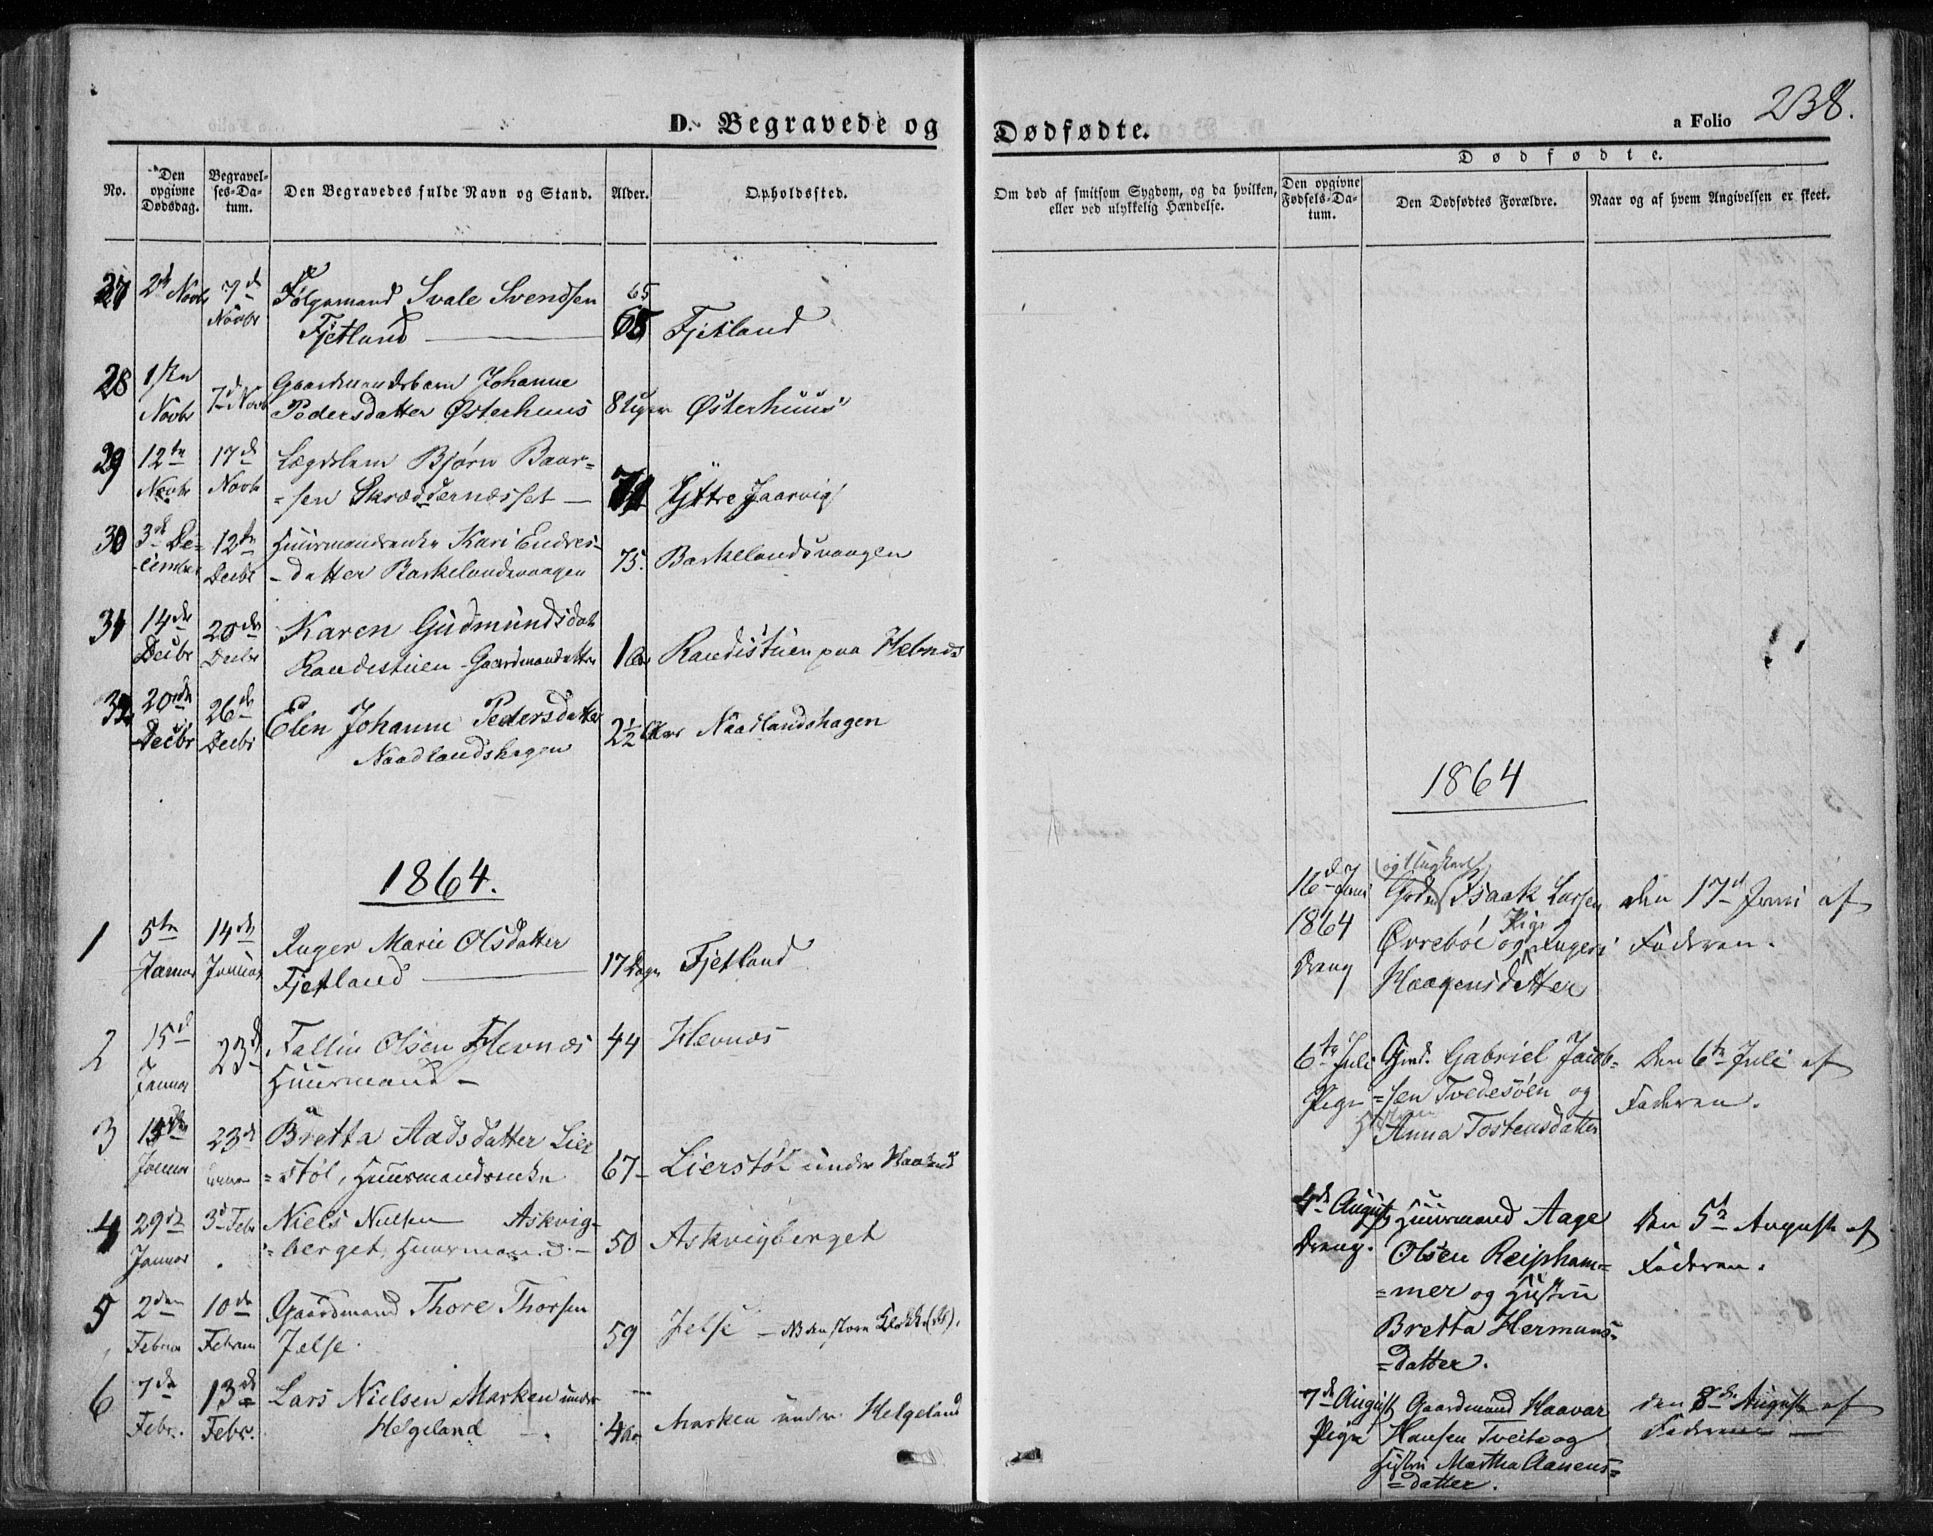 D. Begravede og
Dødfødte.
a Folio 238.
No.
Den opgivne Dødsdag.
Begravelses-Datum.
Den Begravedes fulde Navn og Stand.
Alder.
Opholdssted.
Om død af smitsom Sygdom, og da hvilken,
eller ved ulykkelig Hændelse.
Dødfødte.
Den opgivne Fødsels-Datum.
Den Dødfødtes Forældre.
Naar og af hvem Angivelsen er skeet.
27 2d Novbr 7d Novbr Følgemand Svale Svendsen 65
Fjetland 65 Fjetland
28 1ste Novbr 7d Novb Gaardmandsbarn Johanne
Pedersdatter Østerhuus 8 Uger Østerhuus
29 12te Novbr 17d Novbr Lægdslem Bjørn Baar-
=sen Skræddernæsset Yttre Jaarvig
30 3d De-cember 12te Decbr Huusmandsenke Kari Endres-
-datter Barkelandsvaagen 75. Barkelandsvaagen
31 14de Decbr 20de Decbr Karen Gudmundsdatt
Randistuen Gaardmandsdatter 1 Aar Randistuen paa Hebnes
32 20de Decbr 26de Decbr Elen Johanne Pedersdatter
Naadlandshagen 2½ Aar Naadlandshagen
1864.
1 5te Januar 14de Januar Inger Marie Olsdatter
Fjetland 17 Dage Fjetland
2 15d Januar 23d Fallin Olsen Hevnæs
Huusmand - 44 Hevnæs
3 Januar 23d Bretta Aadsdatter Lier
=støl, Huusmandsenke 67 Lierstøl under
4 29de Januar 3d Febr Niels Nielsen Askvig-
=berget, Huusmand. - 50 Askvigberget
5 2den Februar 10de Februar Gaardmand Thore Thorsen
Jelse. 59 Jelse - NB den store Klokke
6 7de Febr. 13de Febr. Lars Nielsen Marken under
Helgeland 4 Aar Marken under Helgeland
1864
16d Juni 1864 Dreng
og Ungkarl
Isaak Larsen
Øvrebøe og Pige Ingeri
Haagensdatter
Den 17d Juni af
Faderen.
6te Juli Pige
Gmd. Gabriel Jacob-
=sen Tvedesøen og
Anna Tostensdatter
Den 6te Juli af
Faderen.
4de August Dreng.
Huusmand Aage
Olsen Reipham-
=mer og Hustru
Bretta Hermans-
=datter.
Den 5te August af
Faderen.
7de August Pige
Gaardmand Haavar
Hansen Tveita og
Hustru Martha Aanens-
=datter.
Den 8de August af
Faderen